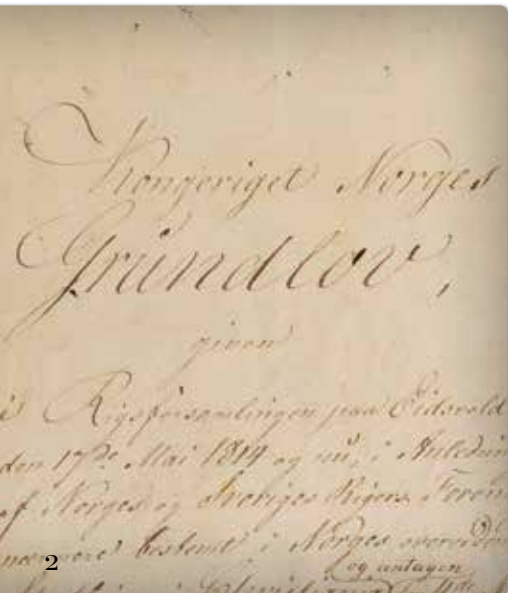 Kongeriget Norges
Grundlov,
given
i Rigsforsamlingen paa Eidsvold
den 17de Mai 1814 og nu, i Anlednin
af Norges og Sveriges Rigers Foren
nærmere bestemt i Norges overorden
og antagen
2